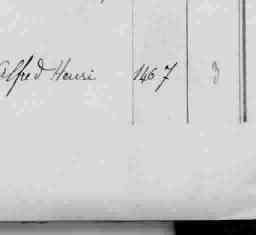 Alfred Henri 1467 3